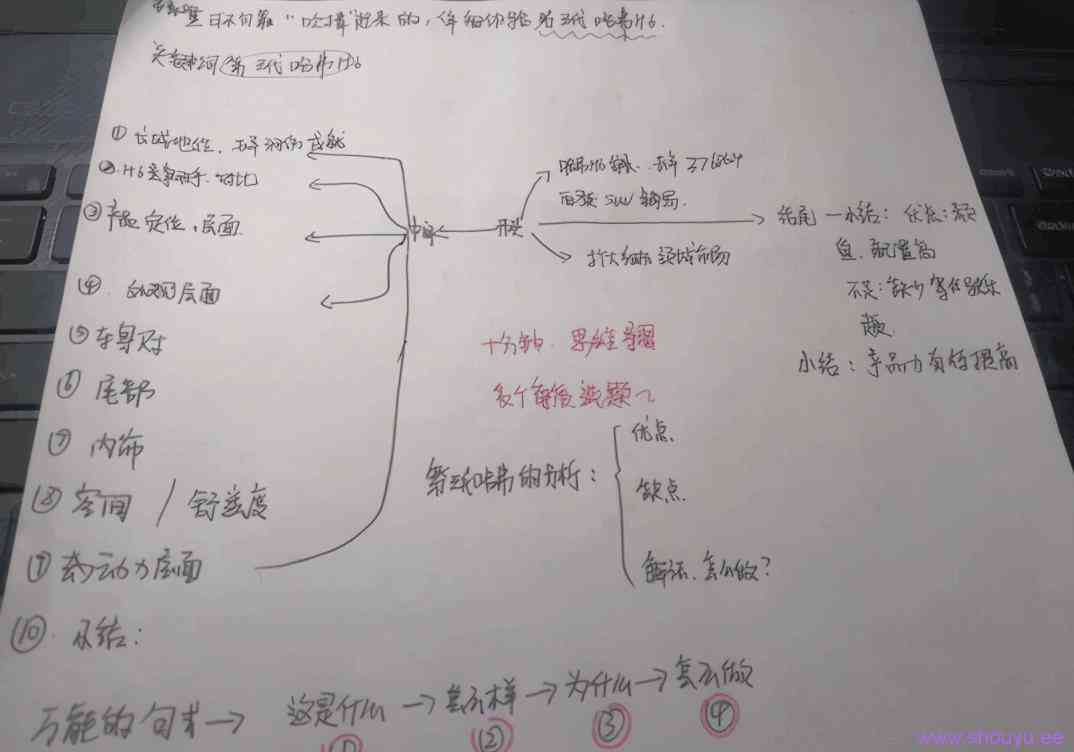 销量不可靠"吹嘘"出来的,体验第三代哈弗H6.
关键词 第三代哈弗H6
① 长城地位,去年 成就
② H6竞争对手.对比
③ 产品定位,层面
④ 外观层面
⑤ 车身尺寸
⑥ 尾部
⑦ 内饰
⑧ 空间 / 舒适度
⑨ 动力层面
⑩. 小结:
中间
开头
哈弗H6 销量.去年376864
SUV
扩大细分领域市场
结尾 — 小结: 优点:颜
值.配置高
不足:缺少
小结:产品力有待提高
十分钟.思维导图
多个角度选题
第三代哈弗的分析:
优点.
缺点.
解决.怎么做?
万能的句式→ 这是什么→怎么样→为什么→怎么做
① ② ③ ④
www.shouyu.ee